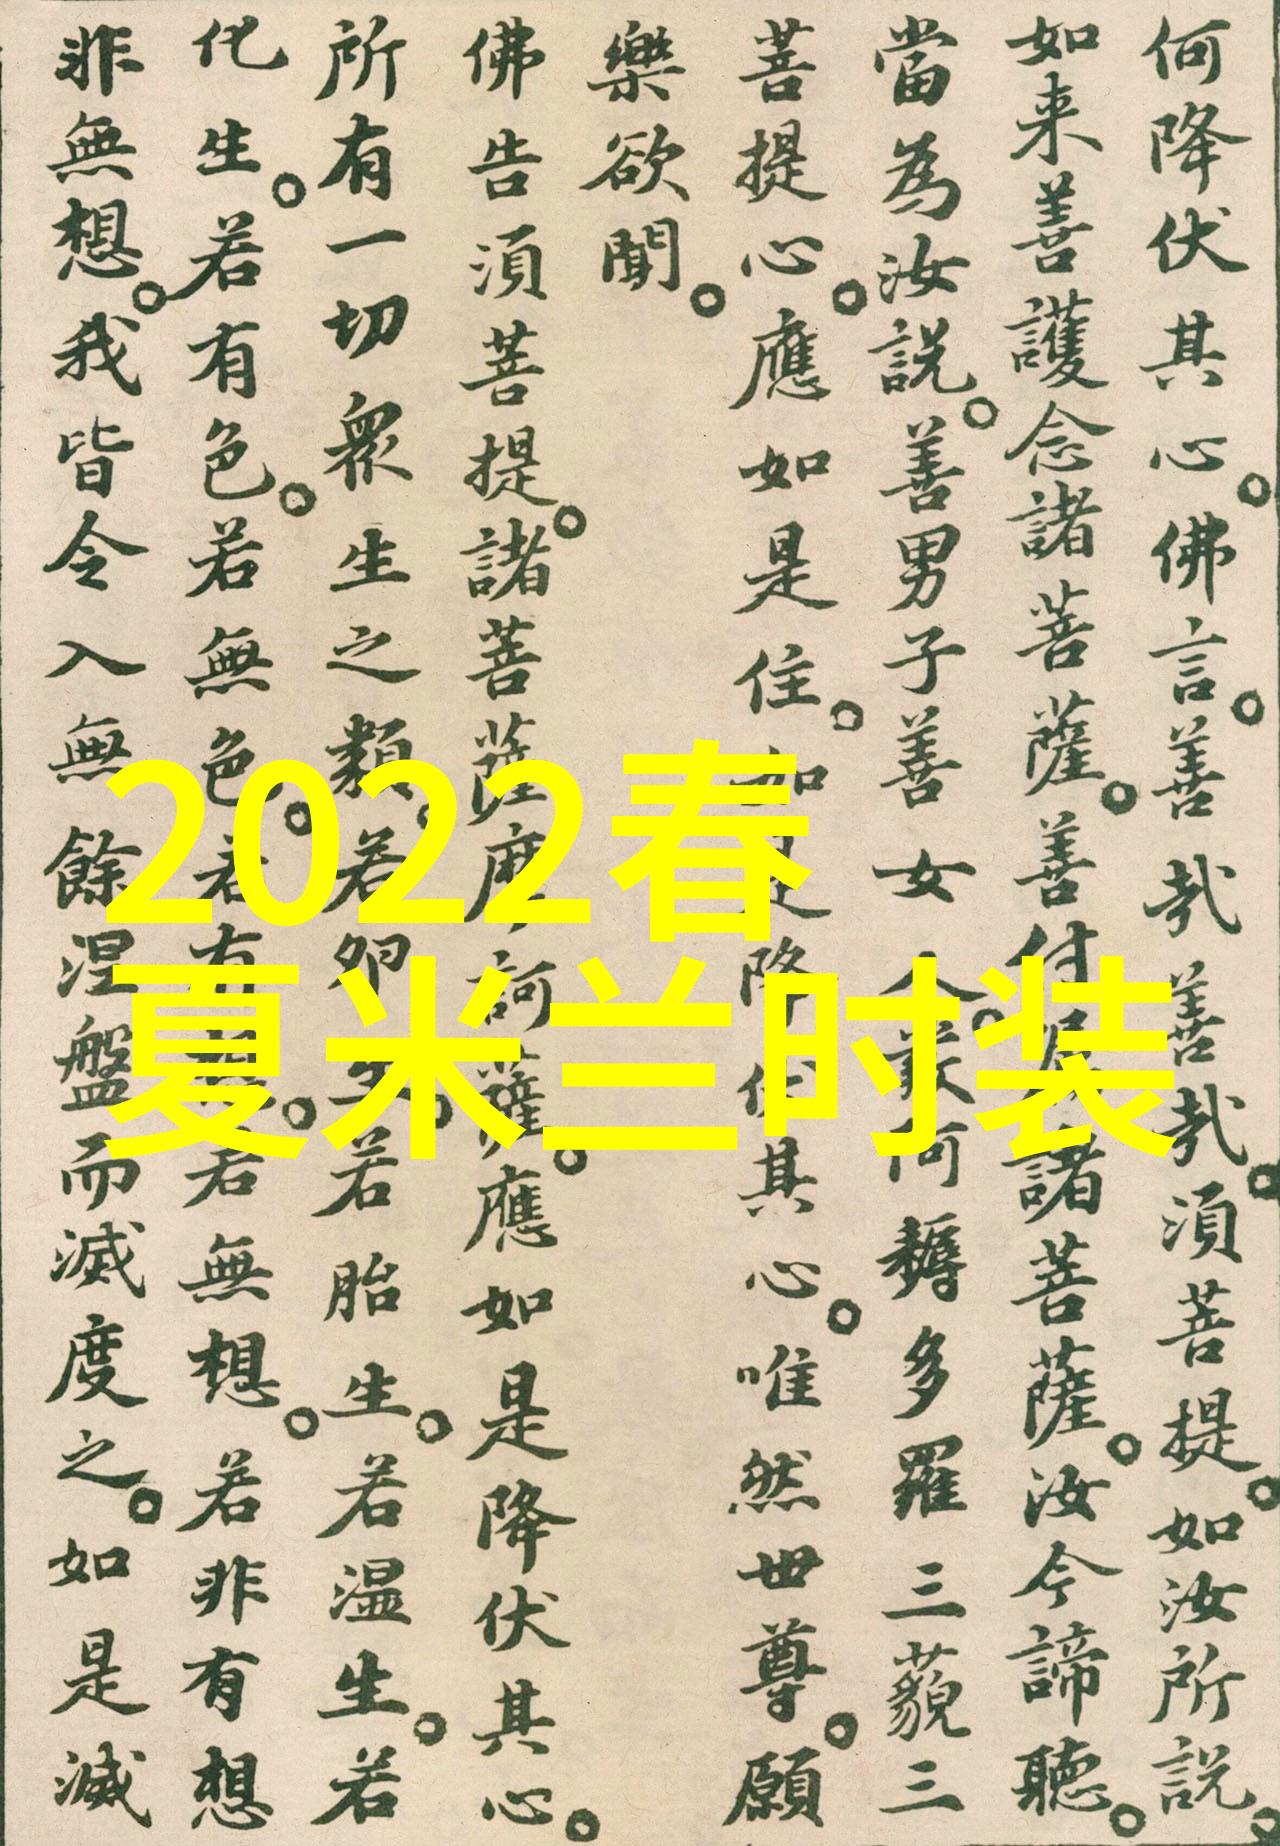 何降伏其心。佛言。善哉善哉。須菩提。如汝所説。
如来善護念諸菩薩。善付諸菩薩。汝今諦聽。
當為汝説。善男子善女人。阿耨多羅三藐三
菩提心。應如是住。如是降伏其心。唯然世尊。願
樂欲聞。
佛告須菩提。諸菩薩摩訶薩。應如是降伏其心。
所有一切衆生之類。若卵生。若胎生。若温生。若
化生。若有色。若無色。若有。若無想。若非有想
非無想。我皆令入無餘涅盤而滅度之。如是滅
2022春
夏米兰时装